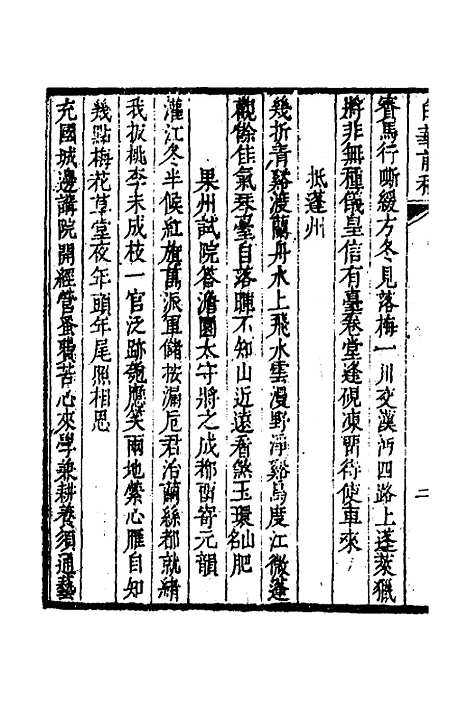 白華前稿
二
賓馬行嘶緩方冬見落梅一川交漢沔四路上蓬萊獵
將非無種儀皇信有臺卷堂逢硯凍留待使車來
抵蓬州
幾折青谿渡蘭舟水上飛水雲漫野淨谿鳥度江微蓬
觀餘佳氣琴臺自落暉不知山近遠看煞玉環肥
果州試院答澹園太守將之成都留寄元韻
灌江冬半候紅旗萬派軍儲按漏卮君治繭絲都就緒
我扳桃李未成枝一官泛跡鴻應笑兩地縈心雁自知
幾點梅花草堂夜年頭年尾照相思
充國城邊講院開經營蚤費苦心來學兼耕養須通藝